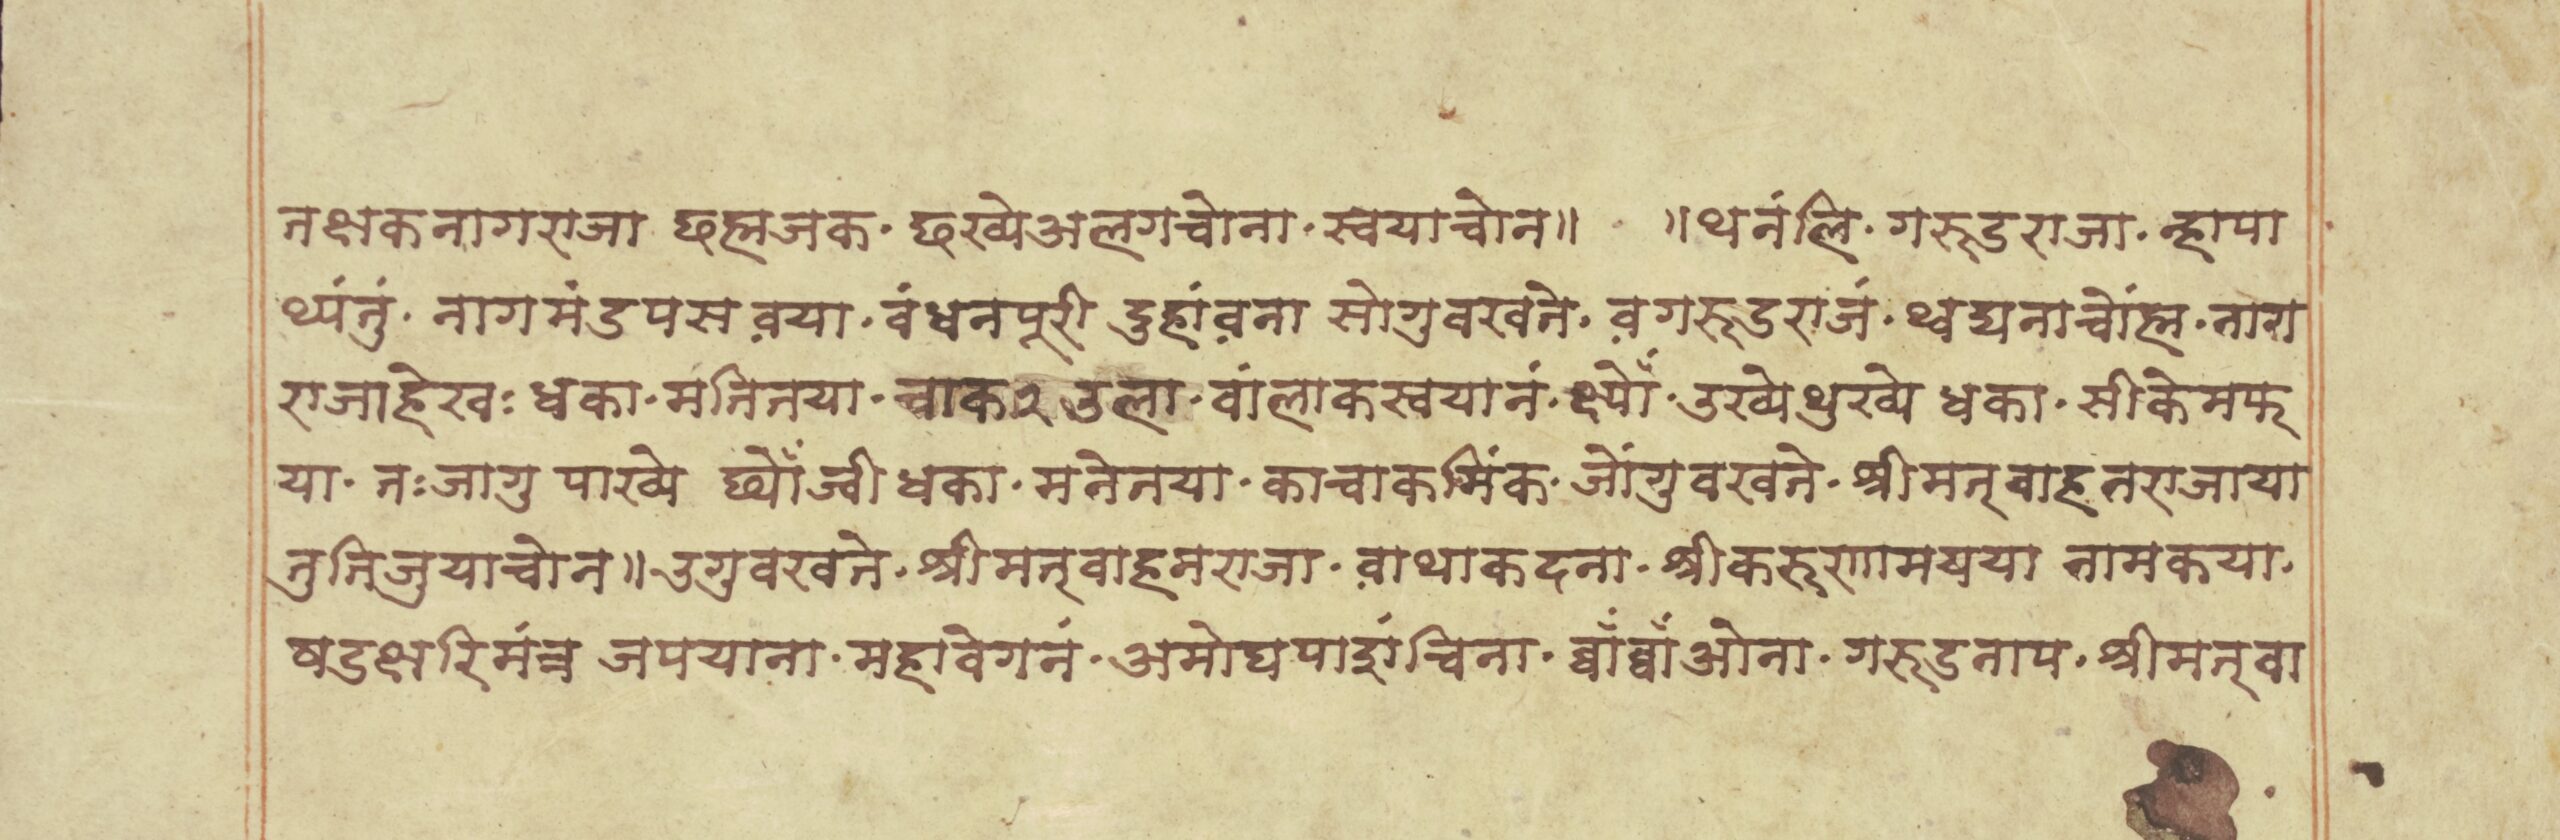 तक्षकनागराजा छह्मजक· छखेअलगचोना· स्वयाचोन॥ ॥थनंलि· गरूडराजा· न्हापा
थ्यंतुं· नागमंडपस व़या· वंधनपूरी दुहांव़ना सोगुवखते· व़गरूडराजं· थ्वद्यनाचोंह्म· नाग
राजाहेखः धका· मतिनया· चाक२उला· वांलाकस्वयानं· क्ष्यों· उख्येथुख्ये धका· सीकेमफ्
या· नःजागु पाख्ये छ्योंज्वी धका· मनेनया· काचाकमिंक· जोंगुवखते· श्रीमत्वाहनराजाया
तुतिजुयाचोन॥ उगुवखते· श्रीमत्वाहनराजा· व़ाथाकदना· श्रीकरूणामयया नामकया·
षडक्षरिमंत्र जपयाना· महावेगनं· अमोघपाशंचिना· ब्वाँब्वाँओना· गरूडनाप· श्रीमत्वा